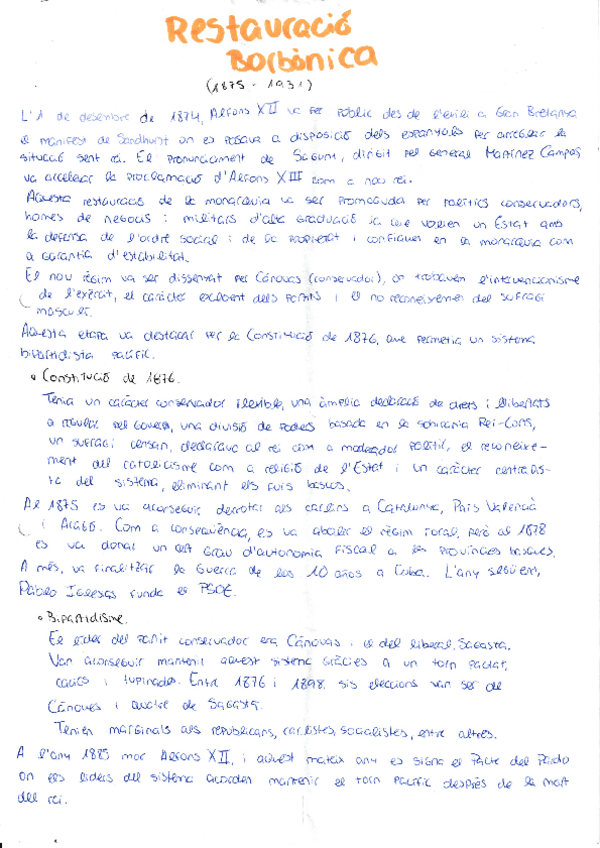 Restauració
Borbònica
(1875 - 1931)
L'1 de desembre de 1874, Alfons XII va fer públic des de l'exili a Gran Bretanya
el manifest de Sandhurst on es posava a disposició dels espanyols per arreglar la
situació sent rei. El pronunciament de Sagunt, dirigit pel general Martínez Campos
va accelerar la proclamació d'Alfons XIII com a nou rei.
Aquesta restauració de la monarquia va ser promoguda per polítics conservadors,
homes de negocis i militars d'alta graduació ja que volien un Estat amb
la defensa de l'ordre social i de la propietat i confiaven en la monarquia com
a garantia d'estabilitat.
El nou règim va ser dissenyat per Cánovas (conservador), on trobaven l'intervencionisme
de l'exèrcit, el caràcter excloent dels partits i el no reconeixement del sufragi
masculí.
Aquesta etapa va destacar per la Constitució de 1876, que permetia un sistema
bipartidista pacífic.
• Constitució de 1876.
Tenia un caràcter conservador flexible, una àmplia declaració de drets i llibertats
a regular pel govern, una divisió de poders basada en la sobirania Rei-Corts,
un sufragi censari, declarava al rei com a moderador polític, el reconeixe-
ment del catolicisme com a religió de l'Estat i un caràcter centralis-
ta del sistema, eliminant els furs bascos.
Al 1875 es va aconseguir derrotar als carlins a Catalunya, País Valencià
i Aragó. Com a conseqüència, es va abolir el règim foral, però al 1878
es va donar un cert grau d'autonomia fiscal a les províncies basques.
A més, va finalitzar la Guerra de los 10 años a Cuba. L'any següent,
Pablo Iglesias funda el PSOE.
• Bipartidisme.
El líder del partit conservador era Cánovas i el del liberal, Sagasta.
Van aconseguir mantenir aquest sistema gràcies a un torn pactat,
cacics i tupinades. Entre 1876 i 1898, sis eleccions van ser de
Cánoves i quatre de Sagasta.
Tenien marginals als republicans, carlistes, socialistes, entre altres.
A l'any 1885 mor Alfons XII, i aquest mateix any es signa el Pacte del Pardo
on els líders del sistema acorden mantenir el torn pacífic després de la mort
del rei.